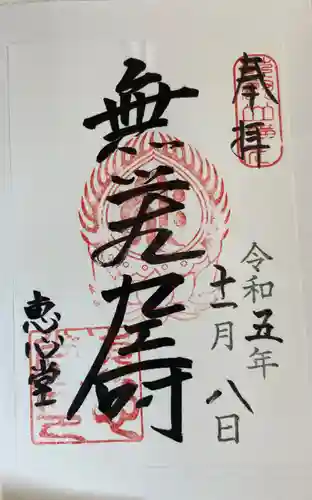 奉拝
令和五年
十一月八日
無量壽
恵心堂